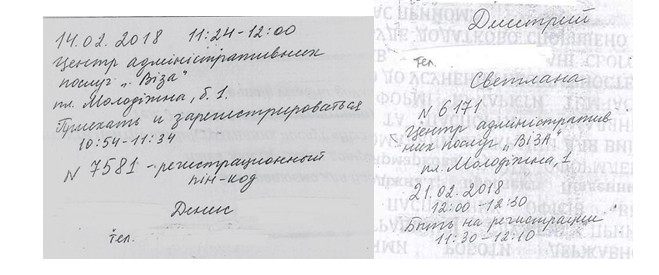 14.02.2018 11:24-12:00
Центр адміністративних
послуг „Віза"
пл. Молодіжна, б.1.
и зарегистрироваться
10:54-11:34
N 7581 - регистрационный
пін-код
Денис
тел.
Дмитрий
тел.
Светлана
N 6171
Центр адміністратив
них послуг „ВІЗА"
пл. Молодіжна, 1
21.02.2018
12:00-12:30
Быть на регистрации
11:30-12:10